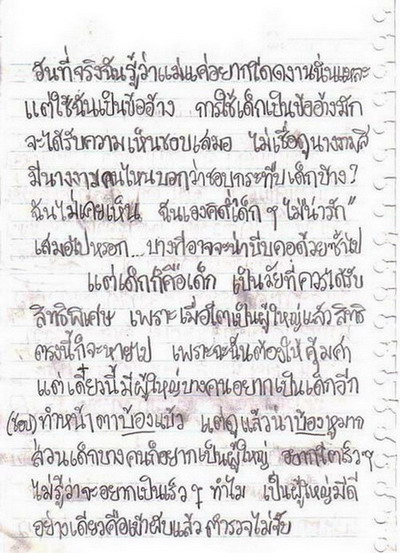 อันที่จริงฉันรู้ว่าแม่แค่อยากโดดงานนั่นแหละ
แต่ใช้ฉันเป็นข้ออ้าง การใช้เด็กเป็นข้ออ้างมัก
จะได้รับความเห็นชอบเสมอ ไม่เชื่อดูนางงามสิ
มีนางงามคนไหนบอกว่าชอบกระทืบเด็กบ้าง?
ฉันไม่เคยเห็น ฉันเองคิดว่าเด็ก ๆ ไม่น่ารัก"
เสมอไปหรอก... บางทีอาจจะน่าบีบคอด้วยซ้ำไป
แต่เด็กก็คือเด็ก เป็นวัยที่ควรได้รับ
สิทธิพิเศษ เพราะเมื่อโตเป็นผู้ใหญ่แล้ว สิทธิ
ตรงนี้ก็จะหายไป เพราะฉะนั้นต้องให้คุ้มค่า
แต่เดี๋ยวนี้มีผู้ใหญ่บางคนอยากเป็นเด็กอีก
(ชอบ) ทำหน้าตาบ้องแบ๊ว แต่ดูแล้วน่าบ้องหูมาก
ส่วนเด็กบางคนก็อยากเป็นผู้ใหญ่ อยากโตเร็วๆ
ไม่รู้ว่าจะอยากเป็นเร็ว ๆ ทำไม เป็นผู้ใหญ่มีดี
อย่างเดียวคือเข้าผับแล้ว ตำรวจไม่จับ